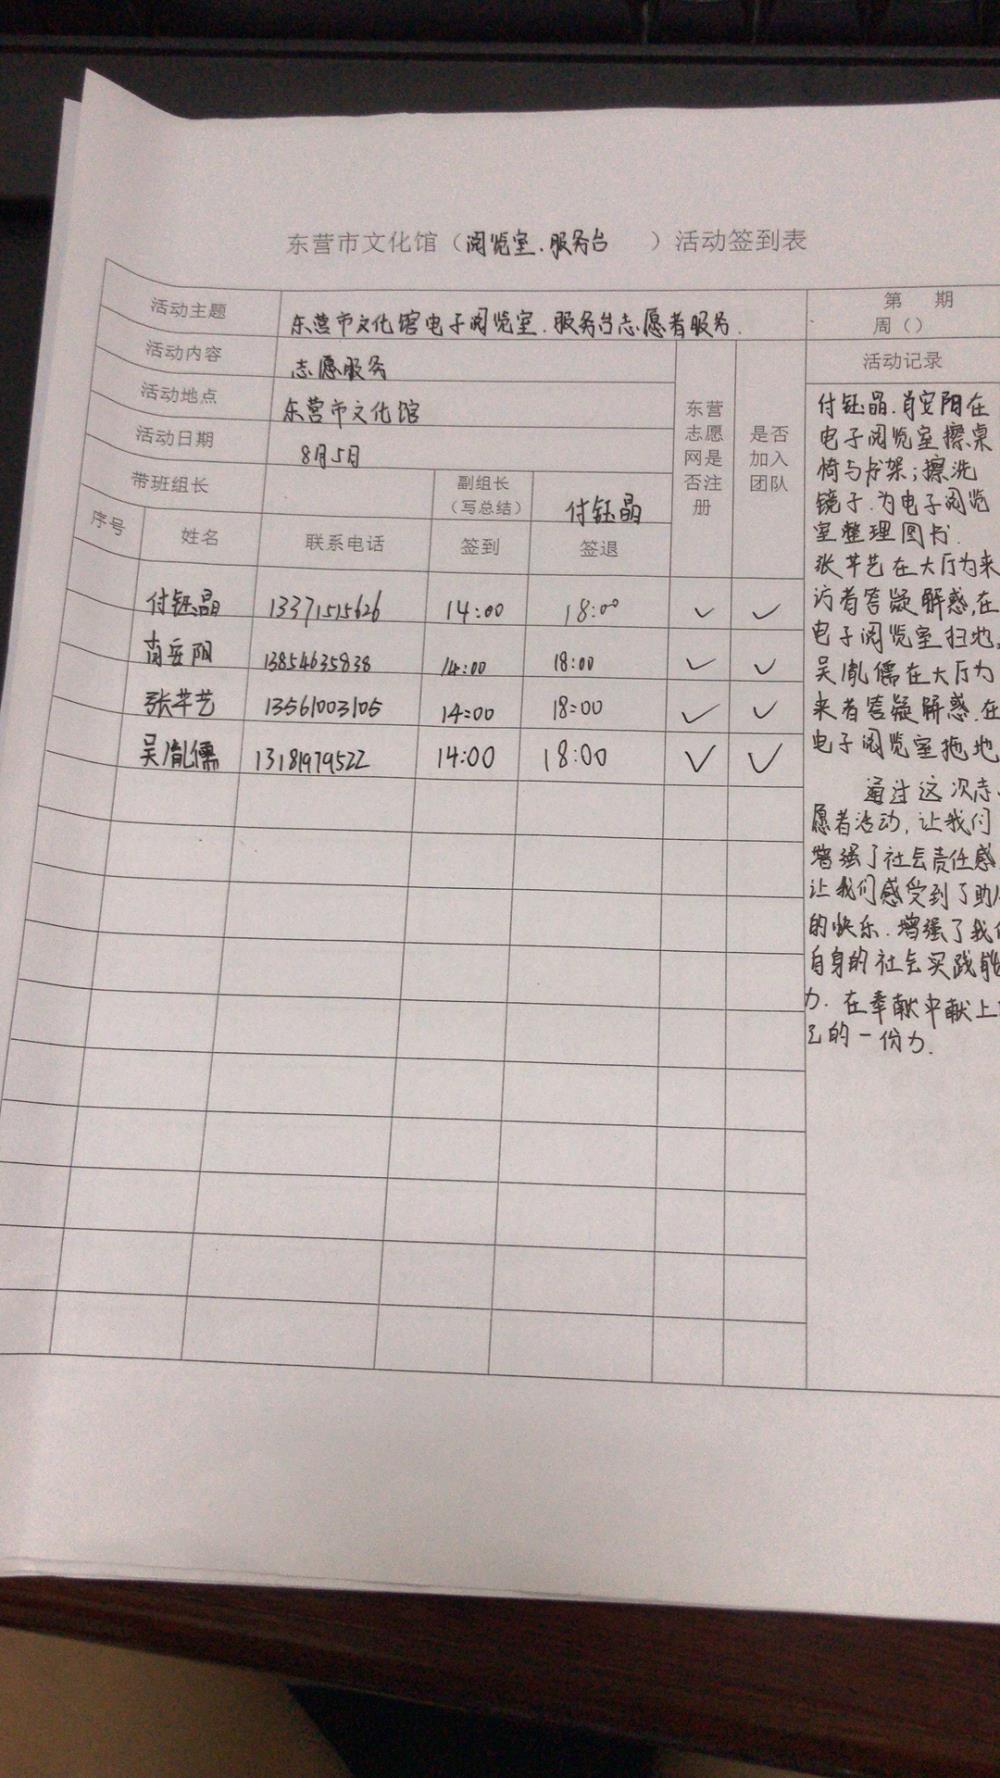 东营市文化馆（阅览室.服务台 ）活动签到表
活动主题 东营市文化馆电子阅览室.服务台志愿者服务. 第 期
周（）
活动内容 志愿服务 活动记录
活动地点 东营市文化馆
活动日期 8月5日
东营志愿网是否注册 是否加入团队
带班组长 副组长（写总结） 付钰晶
序号 姓名 联系电话 签到 签退
付钰晶 13371515626 14:00 18:00 ✓ ✓
肖安阳 13854635838 14:00 18:00 ✓ ✓
张芊艺 13561003105 14:00 18:00 ✓ ✓
吴胤儒 13181979522 14:00 18:00 ✓ ✓
付钰晶.肖安阳在
电子阅览室擦桌
椅与书架;擦洗
镜子.为电子阅览
室整理图书.
张芊艺在大厅为来
访者答疑解惑,在
电子阅览室扫地,
吴胤儒在大厅为
来者答疑解惑.在
电子阅览室拖地
通过这次志
愿者活动,让我们
增强了社会责任感
让我们感受到了助
的快乐.增强了我
自身的社会实践能
力.在奉献中献上
己的一份力.